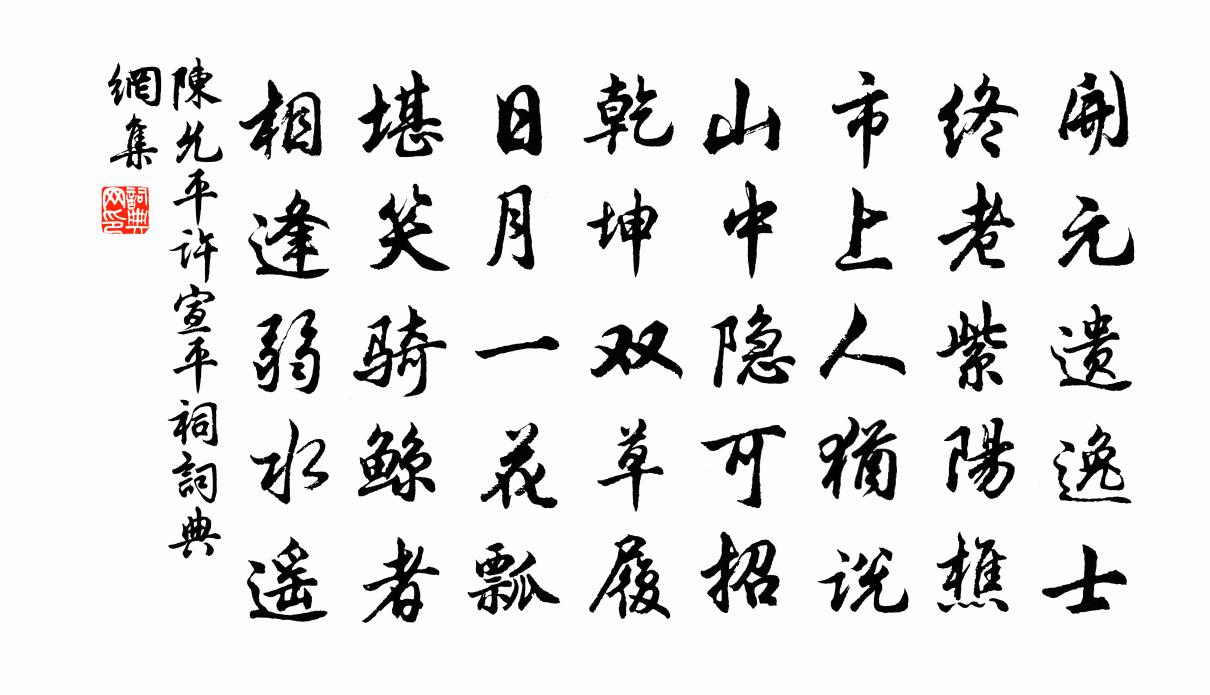 開元遺逸士
終老紫陽樵
市上人猶说
山中隐可招
乾坤双草履
日月一花瓢
堪笑骑鲸者
相逢弱水遥
陳允平许宣平祠詞典
網集
詞典
网印